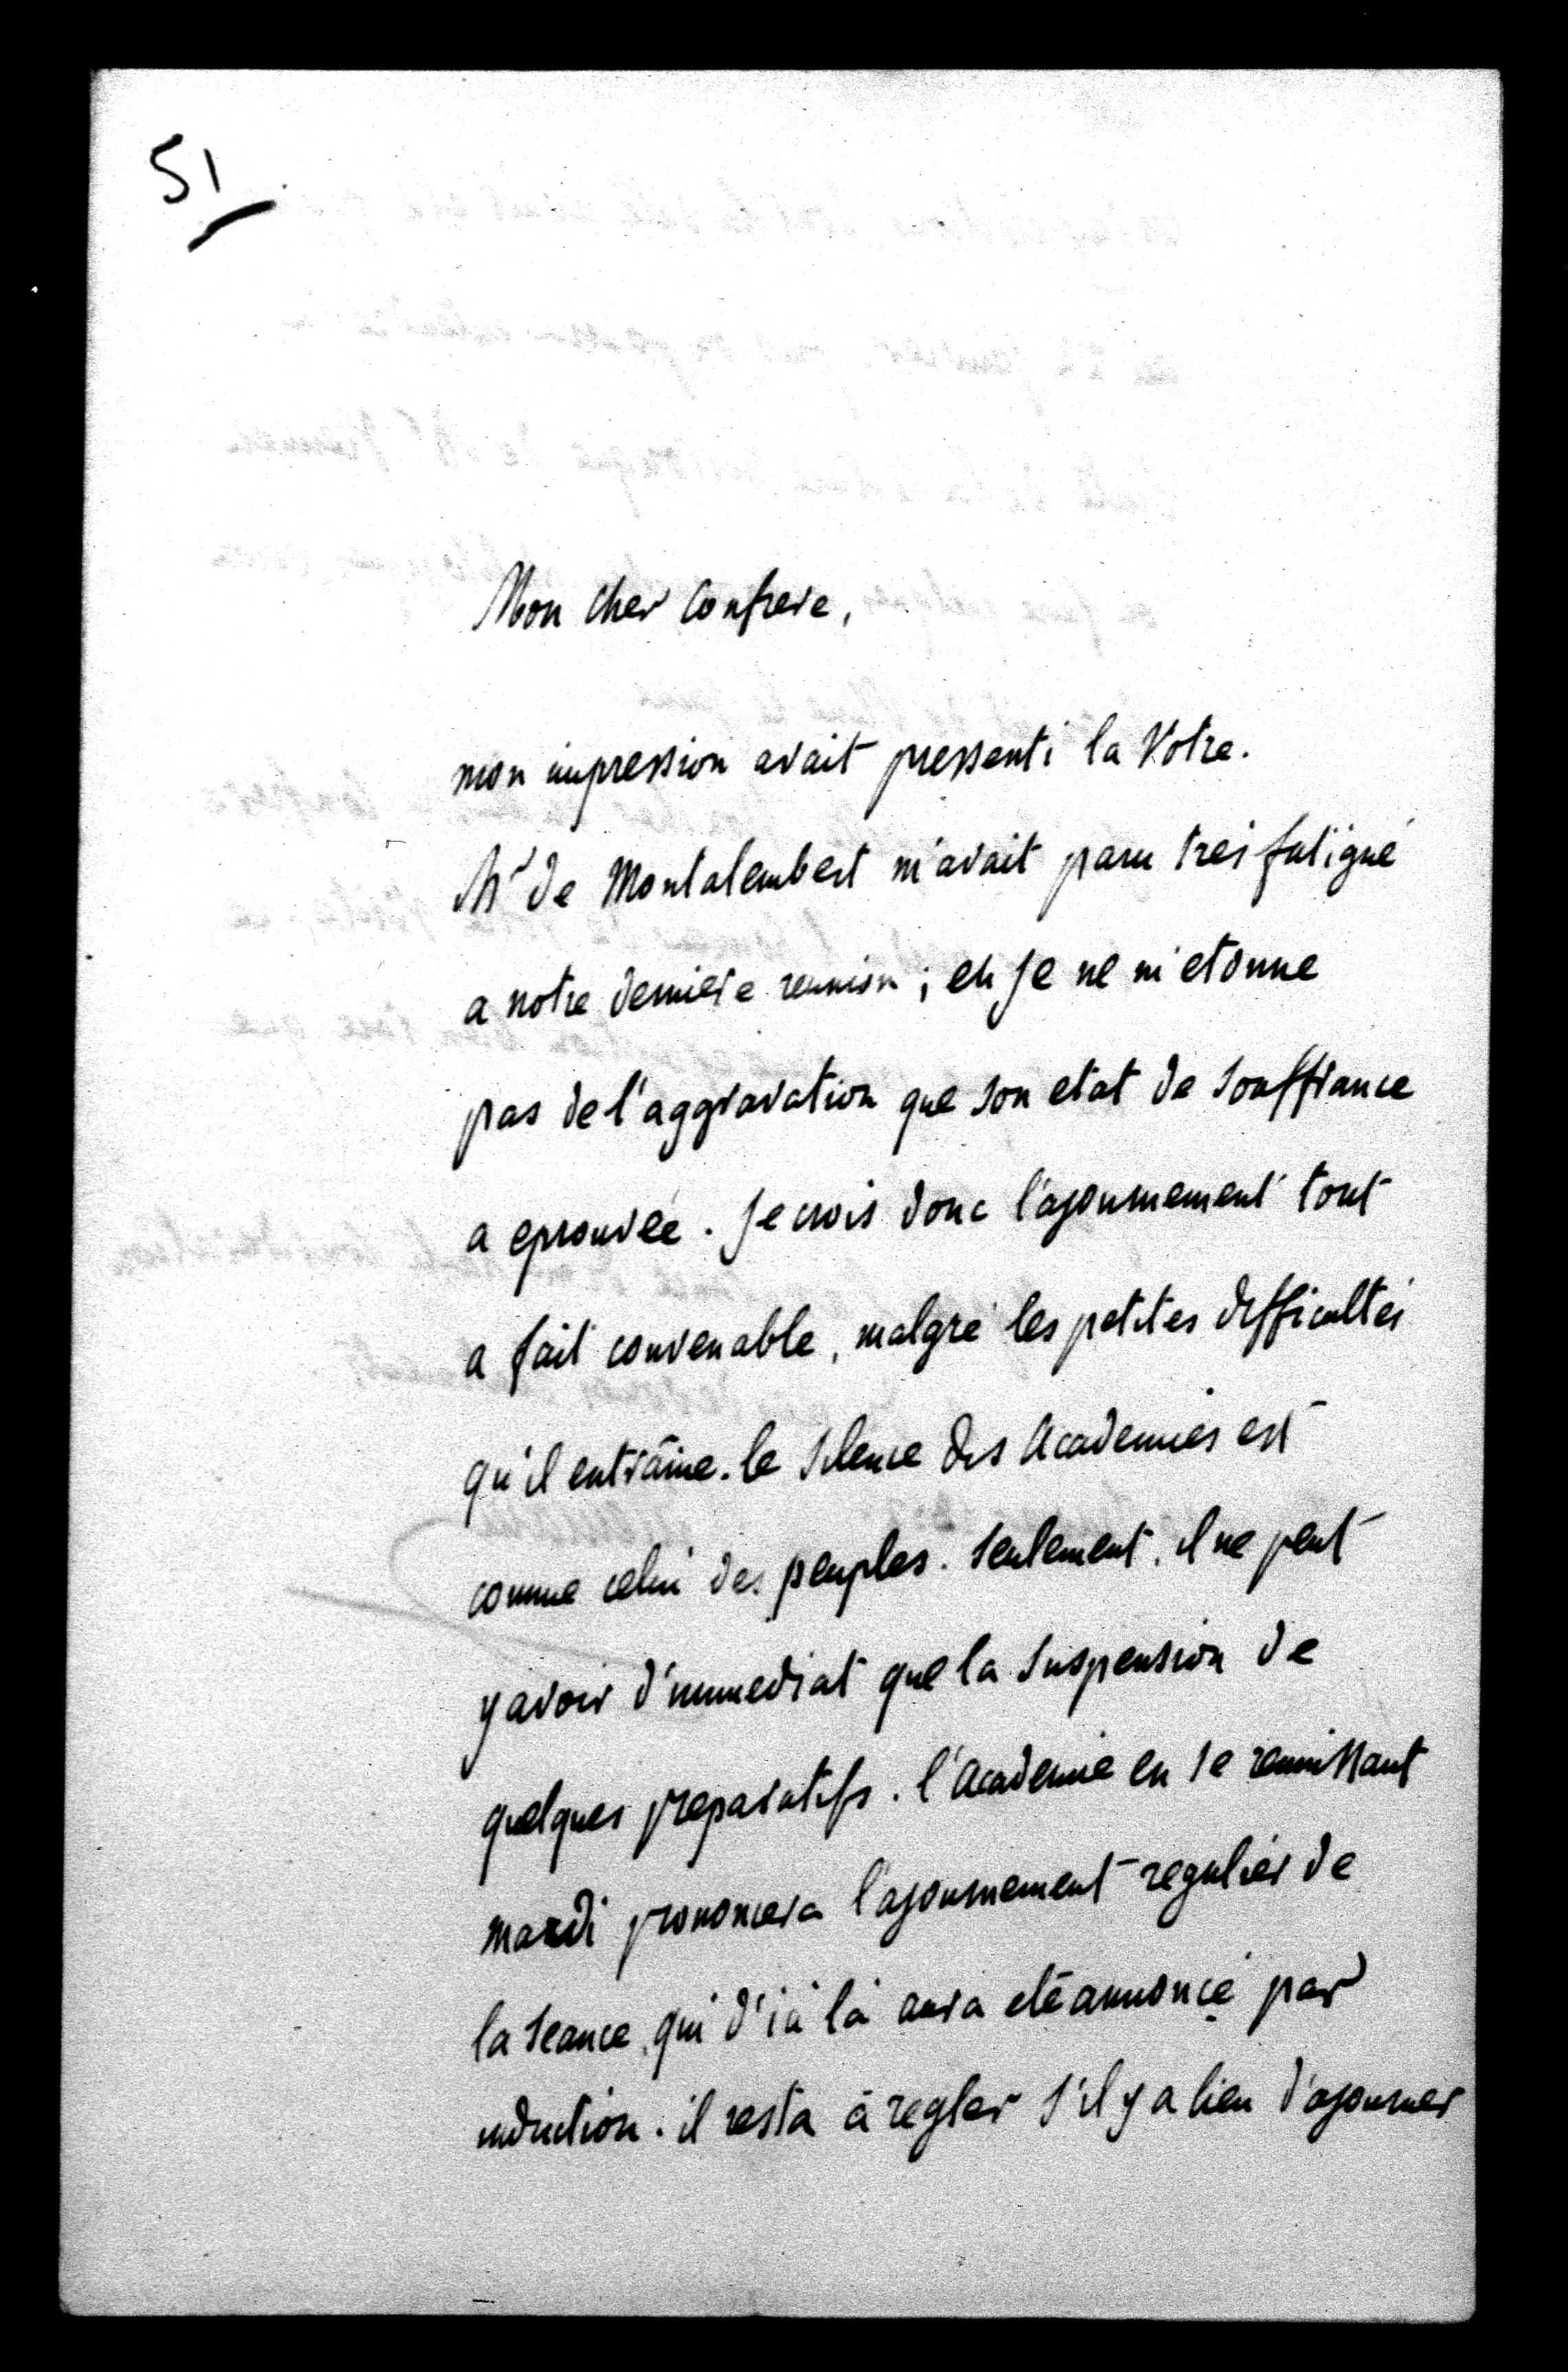 51
Mon cher confrere,
mon impression avait pressenti la Votre.
Mr de Montalembert m'avait paru tres fatigué
a notre derniere reunion; et je ne m'etonne
pas de l'aggravation que son etat de souffrance
a eprouvée. Je crois donc l'ajournement tout
a fait convenable, malgré les petites difficultés
qu'il entraîne. le silence des Academies est
comme celui des peuples. seulement, il ne peut
y avoir d'immediat que la suspension de
quelques preparatifs. l'Academie en se reunissant
mardi prononcera l'ajournement regulier de
la seance, qui d'ici là aura eté annoncé par
induction. il resta à regler s'il y a lieu d'ajourner